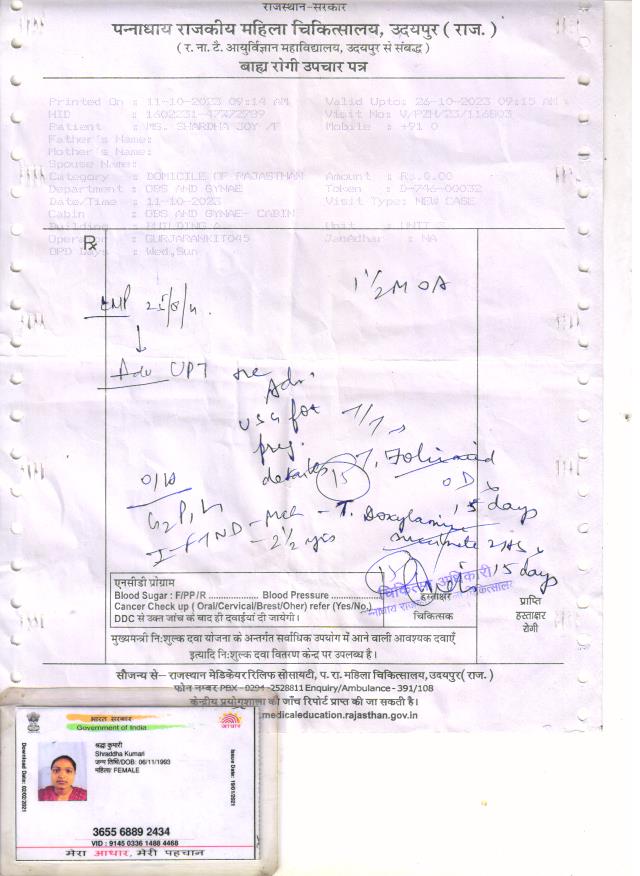 राजस्थान-सरकार
पन्नाधाय राजकीय महिला चिकित्सालय, उदयपुर ( राज. )
( र. ना. टै. आयुर्विज्ञान महाविद्यालय, उदयपुर से संबद्ध )
बाह्य रोगी उपचार पत्र
Printed On : 11-10-2023 09:14 AM Valid Upto: 26-10-2023 09:15 AM
HID : Visit No:
Patient : MS. SHARDHA JOY /F Mobile : +91 0
Father's Name:
Mother's Name:
Spouse Name:
Category : DOMICILE OF RAJASTHAN Amount : Rs.0.00
Department : OBS AND GYNAE Token : D-746-00032
Date/Time : 11-10-2023 Visit Type: NEW CASE
Cabin : OBS AND GYNAE- CABIN
Building : BUILDING A Unit : UNIT
Operator : GURJARANKIT045 JanAadhar : NA
OPD Days : Wed,Sun
Rx
1 1/2 M OA
LMP 25/8/
Adv UPT
Adv.
USG for
preg.
details
15 T. Folic acid
OD x
15 days
G2P1L1
T. Doxylamine
succinate 2HS x
I - FTND - Mch
- 2 1/2 yrs
15 days
चिकित्सा अधिकारी
एनसीडी प्रोग्राम
Blood Sugar : F/PP /R .................... Blood Pressure ....................
Cancer Check up ( Oral/Cervical/Brest/Oher) refer (Yes/No.)
DDC से उक्त जांच के बाद ही दवाईयां दी जायेगी।
हस्ताक्षर
चिकित्सक
प्राप्ति
हस्ताक्षर
रोगी
मुख्यमंत्री निःशुल्क दवा योजना के अन्तर्गत सर्वाधिक उपयोग में आने वाली आवश्यक दवाएँ
इत्यादि निःशुल्क दवा वितरण केन्द्र पर उपलब्ध है।
सौजन्य से– राजस्थान मेडिकेयर रिलिफ सोसायटी, प. रा. महिला चिकित्सालय, उदयपुर( राज. )
फोन नम्बर PBX - 0294 -2528811 Enquiry/Ambulance - 391/108
केन्द्रीय प्रयोगशाला की जाँच रिपोर्ट प्राप्त की जा सकती है।
.medicaleducation.rajasthan.gov.in
भारत सरकार
Government of India
आधार
श्रद्धा कुमारी
Shraddha Kumari
जन्म तिथि/DOB: 06/11/1993
महिला/ FEMALE
Download Date: 02/02/2021
Issue Date: 19/01/2021
3655 6889 2434
VID : 9145 0336 1488 4468
मेरा आधार, मेरी पहचान